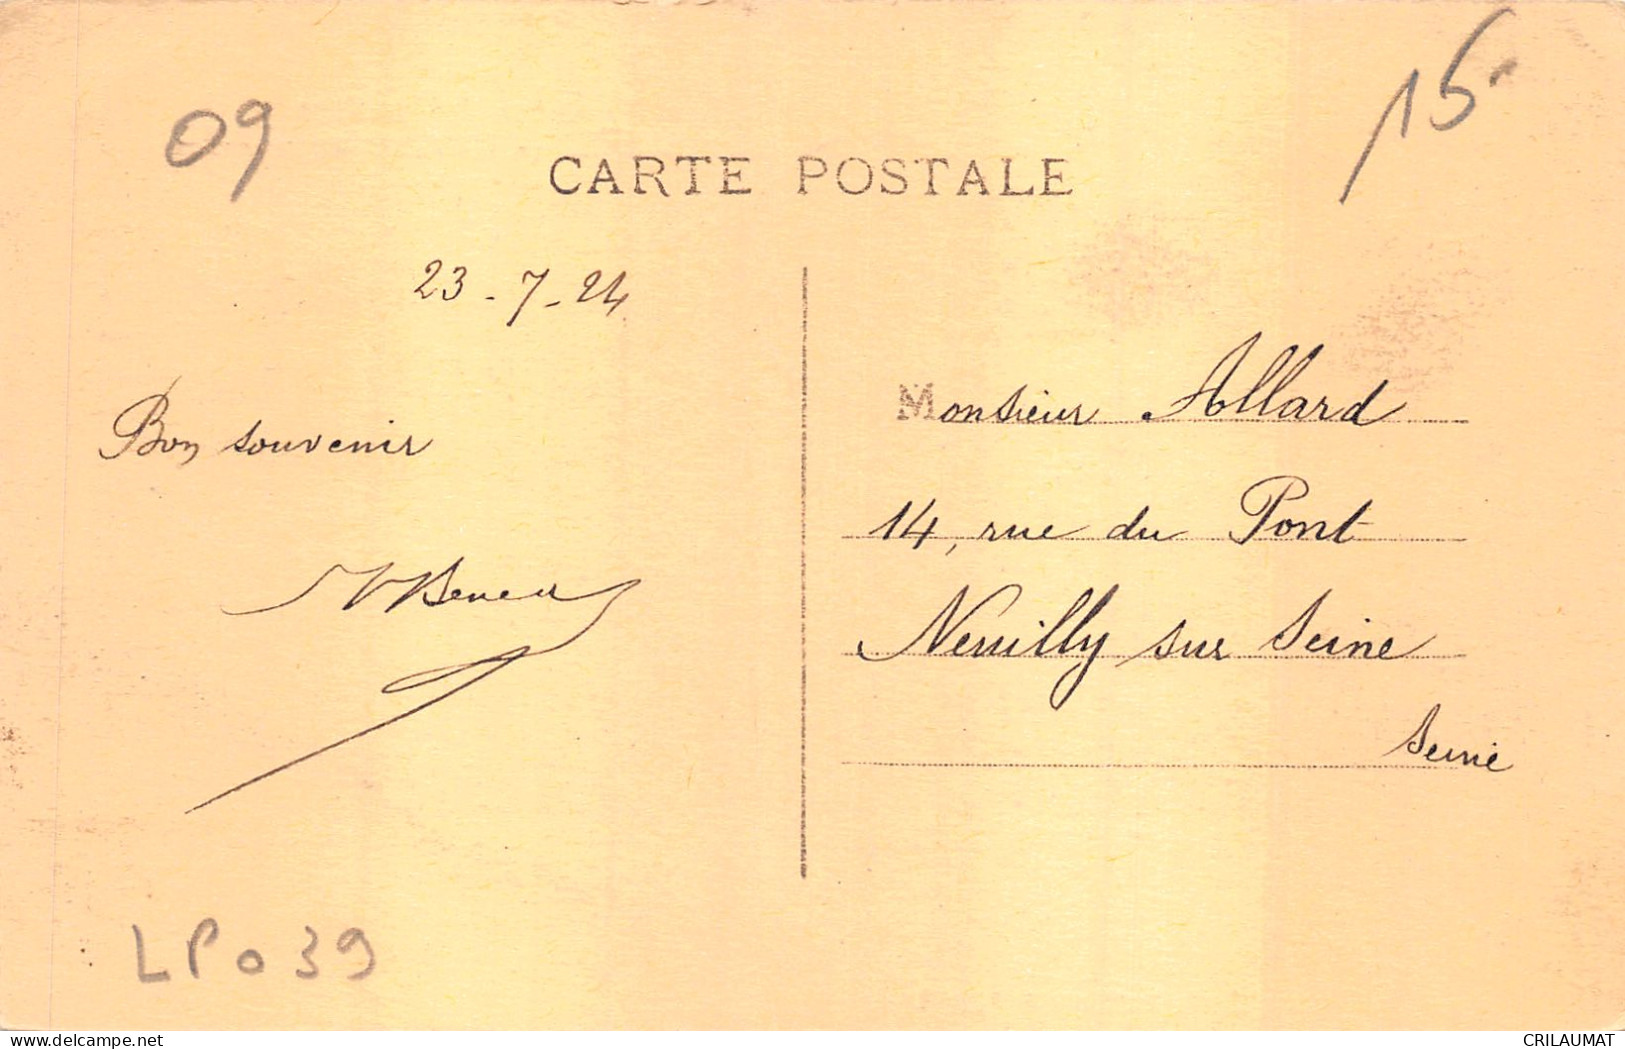 09
15
CARTE POSTALE
23 - 7 - 24
Bon souvenir
Monsieur Allard
14, rue du Pont
Neuilly sur Seine
Seine
LP039
delcampe.net
CRILAUMAT